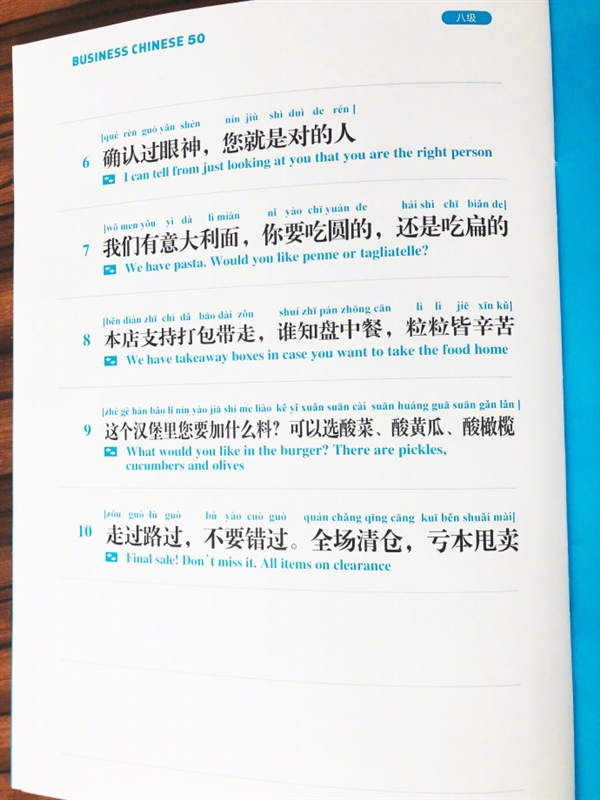 BUSINESS CHINESE 50
八级
[què rèn guò yǎn shén nín jiù shì duì de rén]
6 确认过眼神，您就是对的人
I can tell from just looking at you that you are the right person
[wǒ men yǒu yì dà lì miàn nǐ yào chī yuán de hái shì chī biǎn de]
7 我们有意大利面，你要吃圆的，还是吃扁的
We have pasta. Would you like penne or tagliatelle?
[běn diàn zhī chí dǎ bāo dài zǒu shuí zhī pán zhōng cān lì lì jiē xīn kǔ]
8 本店支持打包带走，谁知盘中餐，粒粒皆辛苦
We have takeaway boxes in case you want to take the food home
[zhè gè hàn bǎo lǐ nín yào jiā shí me liào kě yǐ xuǎn suān cài suān huáng guā suān gǎn lǎn]
9 这个汉堡里您要加什么料？可以选酸菜、酸黄瓜、酸橄榄
What would you like in the burger? There are pickles,
cucumbers and olives
[zǒu guò lù guò bù yào cuò guò quán chǎng qīng cāng kuī běn shuǎi mài]
10 走过路过，不要错过。全场清仓，亏本甩卖
Final sale! Don't miss it. All items on clearance